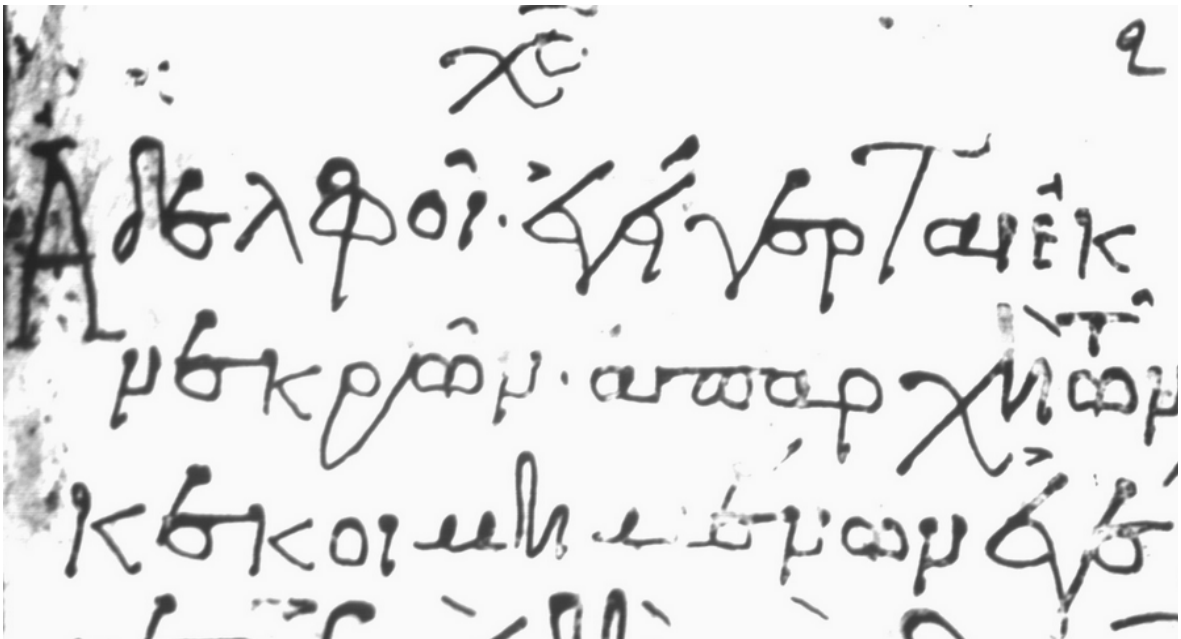 χς
Ἀδελφοῖ· ἐγείγερται ἐκ
νεκρῶν· ἀπαρχὴ τῶν
κεκοιμημένων ἐγέ